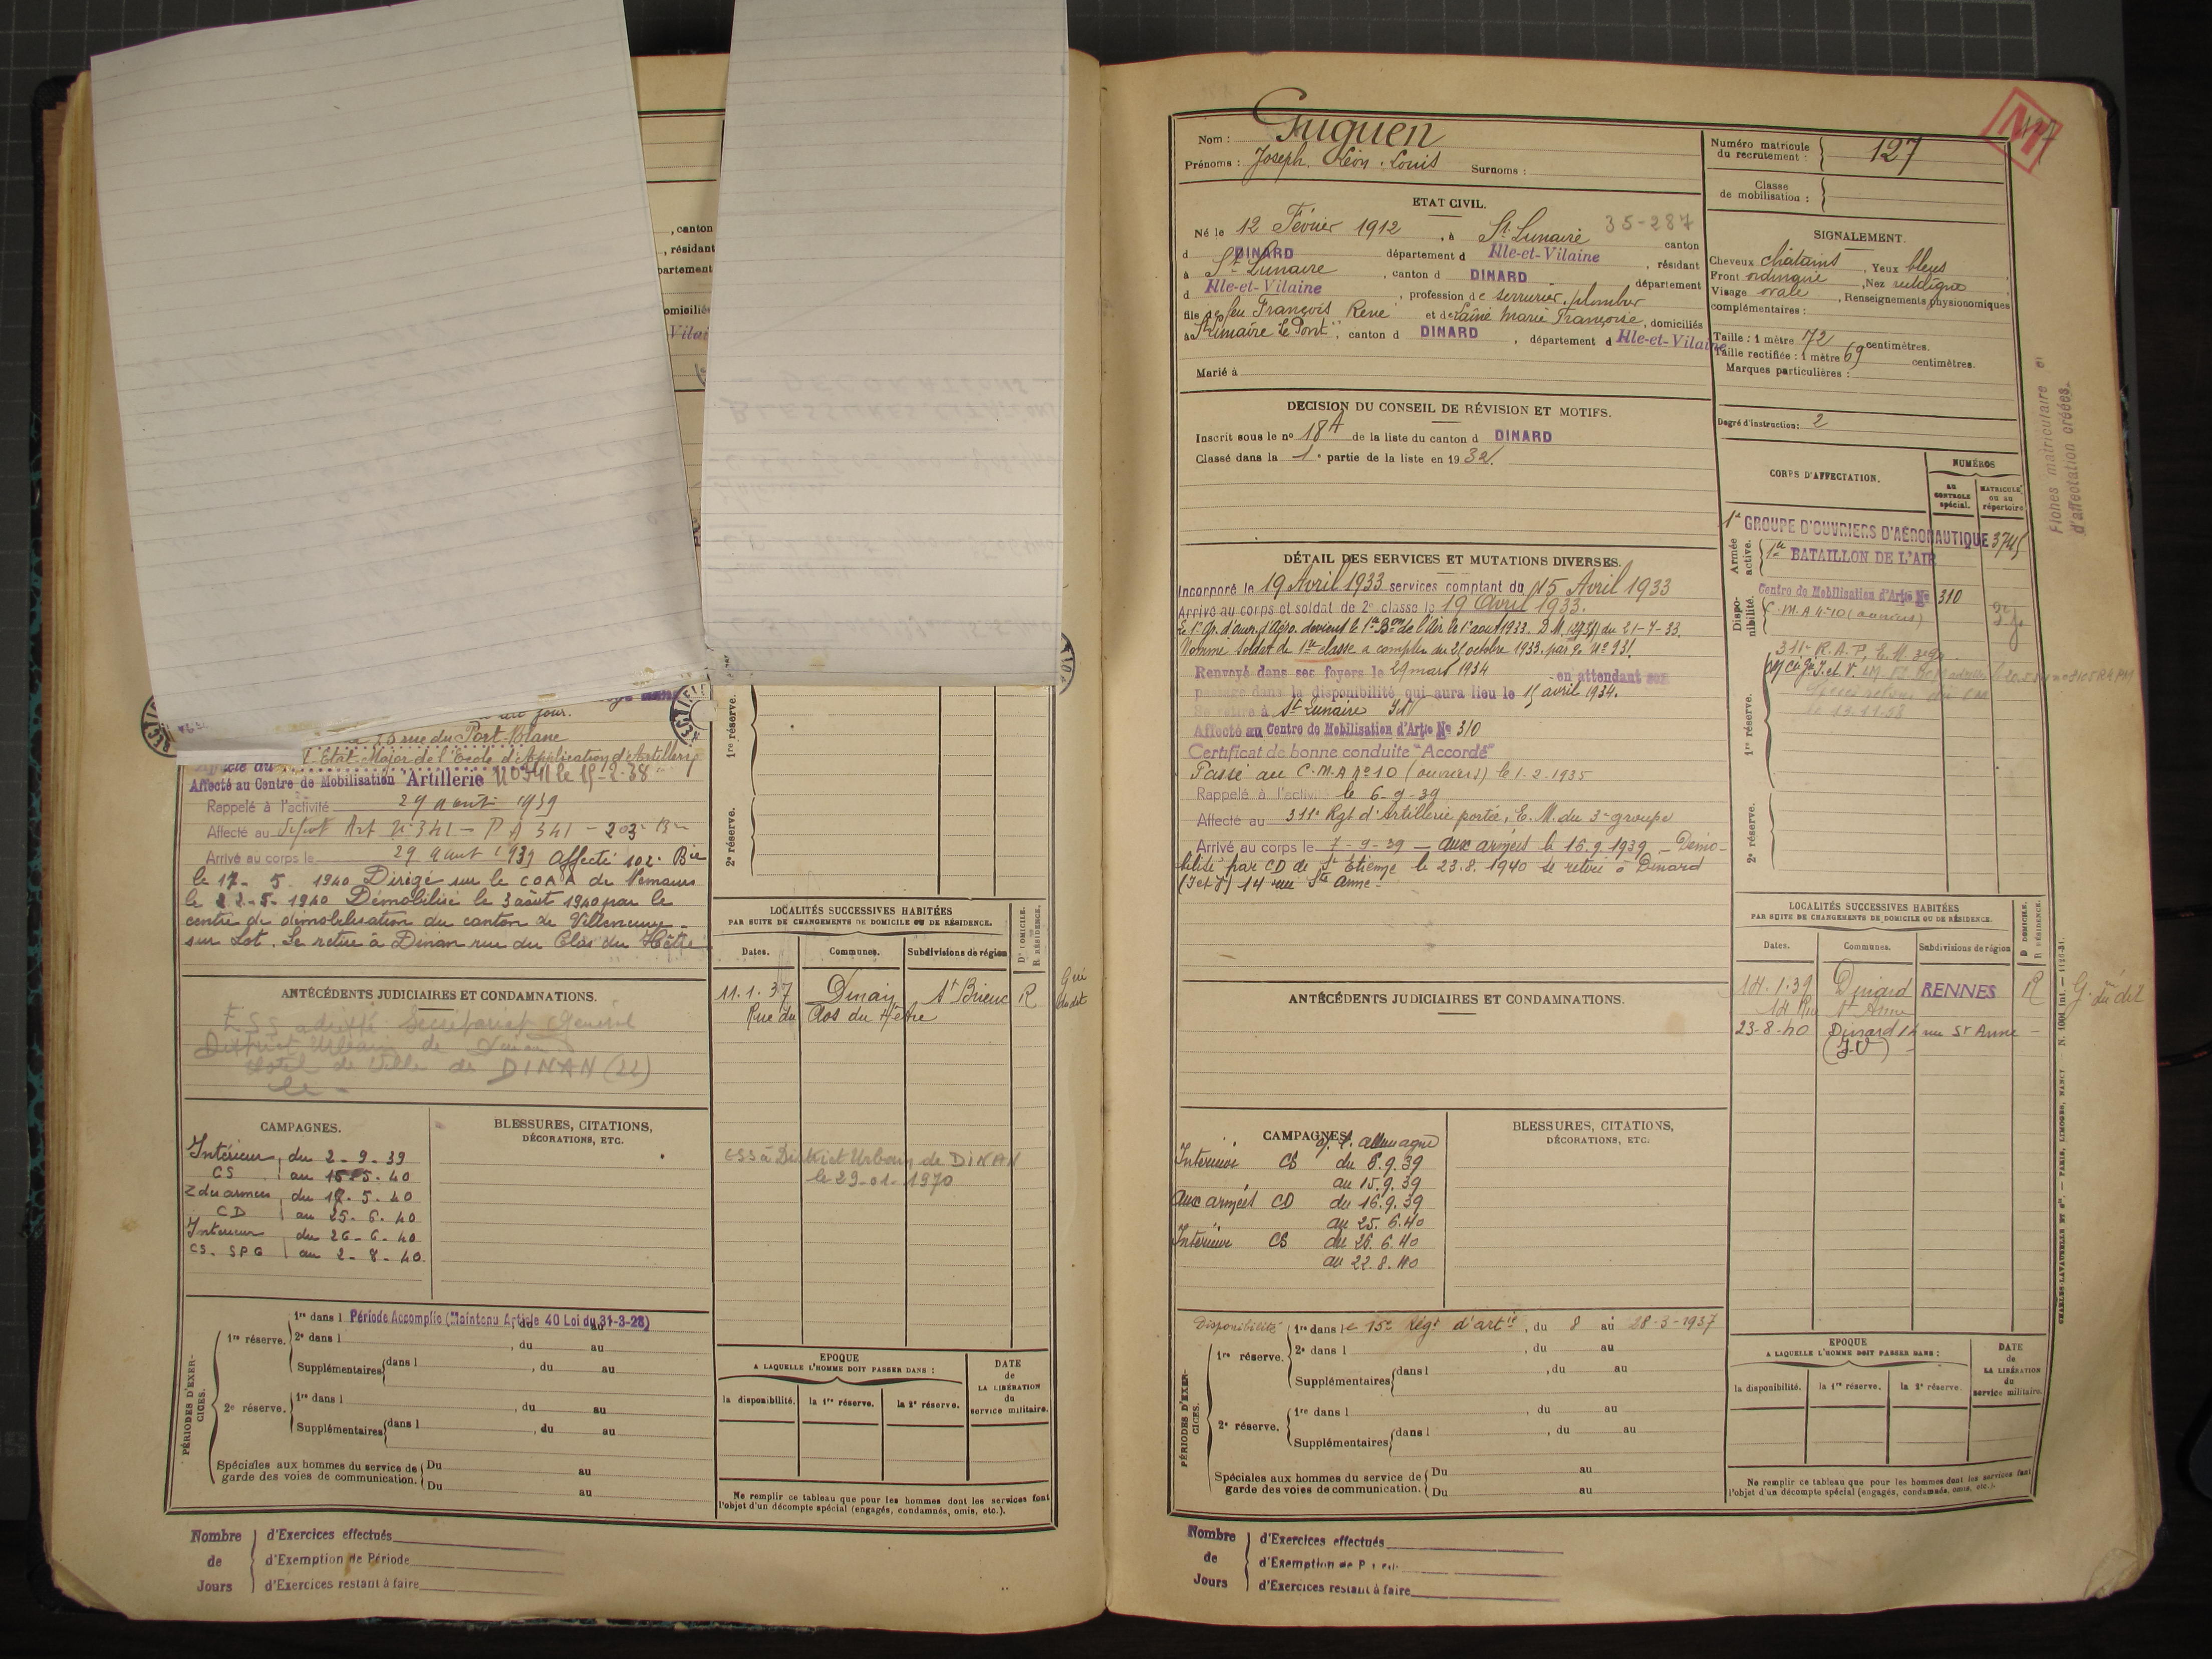 , canton
, résidant
partement
omicilié
Vilai
au jour.
rue du Port-Blanc
l'Etat Major de l'Ecole d'Application d'Artillerie
Affecté au Centre de Mobilisation Artillerie N° 341 le 15-2-38
Rappelé à l'activité 29 août 1939
Affecté au Dépôt Art N° 341 - P A 341 - 203e Bie
Arrivé au corps le 29 août 1939 affecté 102e Bie
le 17-5 1940 Dirigé sur le COAA de Nemours
le 22-5-1940 Démobilisé le 3 août 1940 par le
centre de démobilisation du canton de Villeneuve-
sur Lot. Se retire à Dinan rue du Clos du Hêtre
ANTÉCÉDENTS JUDICIAIRES ET CONDAMNATIONS.
ESS adressé Secrétariat Général
District Urbain de Dinan
Hotel de Ville de DINAN (22)
le -
CAMPAGNES.
Intérieur du 2-9-39
CS au 16-5-40
Z du armées du 17-5-40
CD au 25-6-40
Intérieur du 26-6-40
CS-SPG au 2-8-40
BLESSURES, CITATIONS,
DÉCORATIONS, ETC.
PÉRIODES D'EXERCICES.
1re réserve.
1re dans l Période Accomplie (Maintenu Article 40 Loi du 31-3-28) , du au
2e dans l , du au
Supplémentaires dans l , du au
2e réserve.
1re dans l , du au
Supplémentaires dans l , du au
Spéciales aux hommes du service de garde des voies de communication.
Du au
Du au
Nombre de Jours
d'Exercices effectués
d'Exemption de Période
d'Exercices restant à faire
1re réserve.
2e réserve.
LOCALITÉS SUCCESSIVES HABITÉES
PAR SUITE DE CHANGEMENTS DE DOMICILE OU DE RÉSIDENCE.
D. DOMICILE.
R. RÉSIDENCE.
Dates. Communes. Subdivisions de région
11.1.37 Dinan St Brieuc R
Rue du Clos du Hêtre
ESS à District Urbain de DINAN
le 29-01-1970
EPOQUE
A LAQUELLE L'HOMME DOIT PASSER DANS :
la disponibilité. la 1re réserve. la 2e réserve.
DATE
de
LA LIBÉRATION
du
service militaire.
Ne remplir ce tableau que pour les hommes dont les services font
l'objet d'un décompte spécial (engagés, condamnés, omis, etc.).
Nom : Guguen
Prénoms : Joseph Léon Louis Surnoms :
Numéro matricule
du recrutement : 127
Classe
de mobilisation :
M
ETAT CIVIL.
35-287
Né le 12 Février 1912 , à St Lunaire canton
d DINARD département d Ille-et-Vilaine , résidant
à St Lunaire , canton d DINARD département
d Ille-et-Vilaine , profession de serrurier, plombier
fils de feu François René et de Lainé Marie Françoise, domiciliés
à St Lunaire "Le Pont", canton d DINARD , département d Ille-et-Vilaine
Marié à
SIGNALEMENT.
Cheveux châtains , Yeux bleus
Front ordinaire , Nez rectiligne
Visage ovale , Renseignements physionomiques
complémentaires :
Taille : 1 mètre 72 centimètres.
Taille rectifiée : 1 mètre 69 centimètres.
Marques particulières :
Degré d'instruction : 2
DECISION DU CONSEIL DE RÉVISION ET MOTIFS.
Inscrit sous le no 18A de la liste du canton d DINARD
Classé dans la 1e partie de la liste en 1932.
DÉTAIL DES SERVICES ET MUTATIONS DIVERSES.
Incorporé le 19 Avril 1933 services comptant du 15 Avril 1933
Arrivé au corps et soldat de 2e classe le 19 Avril 1933.
Le 1er Gr. d'ouvr. d'Aéro. devient le 1er Bon de l'Air le 1er août 1933. D.M. du 21-7-33.
Nommé soldat de 1re classe à compter du 21 octobre 1933. par o. N° 931
Renvoyé dans ses foyers le 29 mars 1934 en attendant son
passage dans la disponibilité qui aura lieu le 15 avril 1934.
Se retire à St Lunaire I&V
Affecté au Centre de Mobilisation d'Artie No 310
Certificat de bonne conduite "Accordé"
Passé au C.M.A N° 10 (ouvriers) le 1.2.1935
Rappelé à l'activité le 6-9-39
Affecté au 311e Rgt d'Artillerie portée, E.M. du 3e groupe
Arrivé au corps le 7-9-39 - aux armées le 16.9.1939 - Démo-
bilisé par CD de St Etienne le 23.8.1940 se retire à Dinard
(I et V) 14 rue Ste Anne-
CORPS D'AFFECTATION.
NUMÉROS
AU CONTROLE spécial.
MATRICULE ou au répertoire
Armée active.
1er GROUPE D'OUVRIERS D'AÉRONAUTIQUE 3745
1er BATAILLON DE L'AIR
Disponibilité.
Centre de Mobilisation d'Artie No 310
C.M.A N° 10 (ouvriers)
1re réserve.
311e R.A.P. E.M. 3e gr
le 13.11.38
2e réserve.
Fiches matriculaire et
d'affectation créées.
LOCALITÉS SUCCESSIVES HABITÉES
PAR SUITE DE CHANGEMENTS DE DOMICILE OU DE RÉSIDENCE.
D. DOMICILE.
R. RÉSIDENCE.
Dates. Communes. Subdivisions de région
14.1.39 Dinard RENNES R
14 Rue St Anne
23-8-40 Dinard 14 rue St Anne -
(I.V) -
ANTÉCÉDENTS JUDICIAIRES ET CONDAMNATIONS.
CAMPAGNES.
c/ l'Allemagne
Intérieur CS du 6.9.39
au 15.9.39
aux armées CD du 16.9.39
au 25.6.40
Intérieur CS du 26.6.40
au 22.8.40
BLESSURES, CITATIONS,
DÉCORATIONS, ETC.
PÉRIODES D'EXERCICES.
Disponibilité
1re dans le 15e Régt d'artie , du 8 au 28-3-1937
1re réserve.
2e dans l , du au
Supplémentaires dans l , du au
2e réserve.
1re dans l , du au
Supplémentaires dans l , du au
Spéciales aux hommes du service de garde des voies de communication.
Du au
Du au
EPOQUE
A LAQUELLE L'HOMME DOIT PASSER DANS :
la disponibilité. la 1re réserve. la 2e réserve.
DATE
de
LA LIBÉRATION
du
service militaire.
Ne remplir ce tableau que pour les hommes dont les services font
l'objet d'un décompte spécial (engagés, condamnés, omis, etc.).
CHARLES-LAVAUZELLE ET Cie. — PARIS, LIMOGES, NANCY
Nombre de Jours
d'Exercices effectués
d'Exemption de
d'Exercices restant à faire